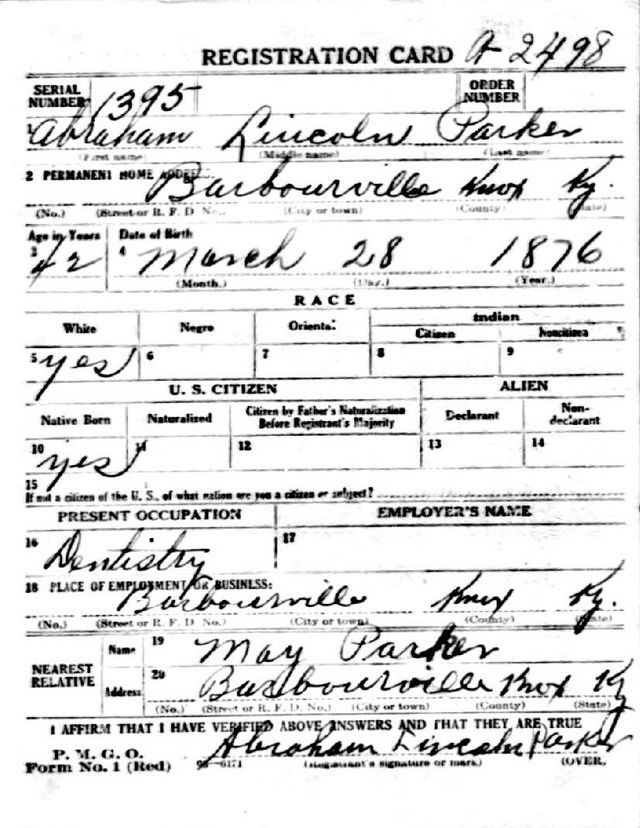 REGISTRATION CARD A-2498
SERIAL NUMBER 1395 ORDER NUMBER
1 Abraham Lincoln Parker
(First name) (Middle name) (Last name)
2 PERMANENT HOME ADDRESS:
Barbourville Knox Ky.
(No.) (Street or R. F. D No.) (City or town) (County) (State)
Age in Years Date of Birth
3 42 4 March 28 1876
(Month.) (Day.) (Year.)
RACE
White Negro Oriental Indian
Citizen Noncitizen
5 yes 6 7 8 9
U. S. CITIZEN ALIEN
Native Born Naturalized Citizen by Father's Naturalization Before Registrant's Majority Declarant Non-declarant
10 yes 11 12 13 14
15
If not a citizen of the U. S., of what nation are you a citizen or subject?
PRESENT OCCUPATION EMPLOYER'S NAME
16 Dentistry 17
18 PLACE OF EMPLOYMENT OR BUSINESS:
Barbourville Knox Ky.
(No.) (Street or R. F. D No.) (City or town) (County) (State)
NEAREST RELATIVE
Name 19 May Parker
Address 20 Barbourville Knox Ky
(No.) (Street or R. F. D. No.) (City or town) (County) (State)
I AFFIRM THAT I HAVE VERIFIED ABOVE ANSWERS AND THAT THEY ARE TRUE
P. M. G. O. Abraham Lincoln Parker
Form No. 1 (Red) (Registrant's signature or mark) (OVER)